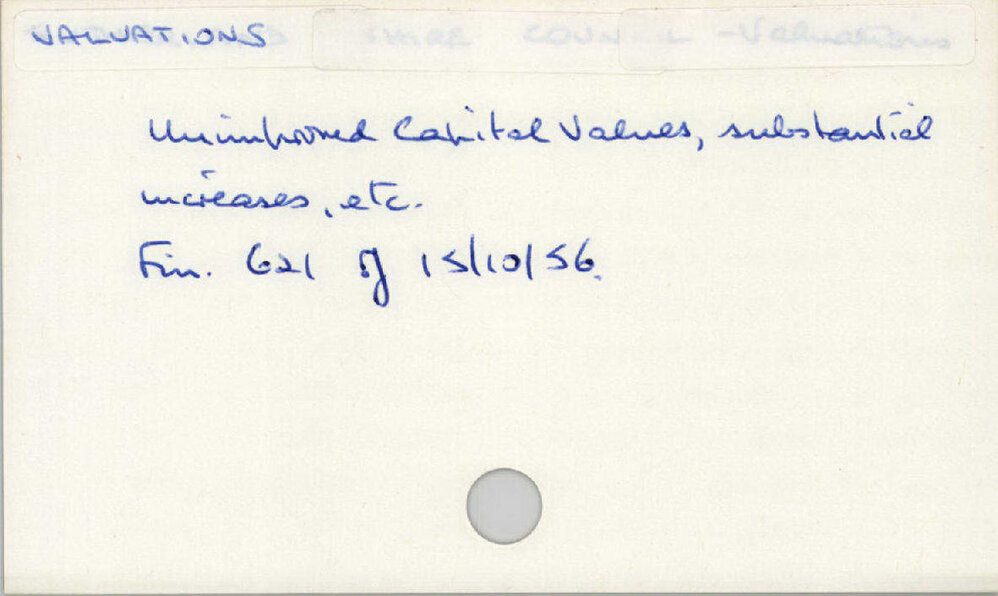 VALUATIONS SHIRE COUNCIL - Valuations
Unimproved Capital Values, substantial
increases, etc.
Fin. 621 of 15/10/56.